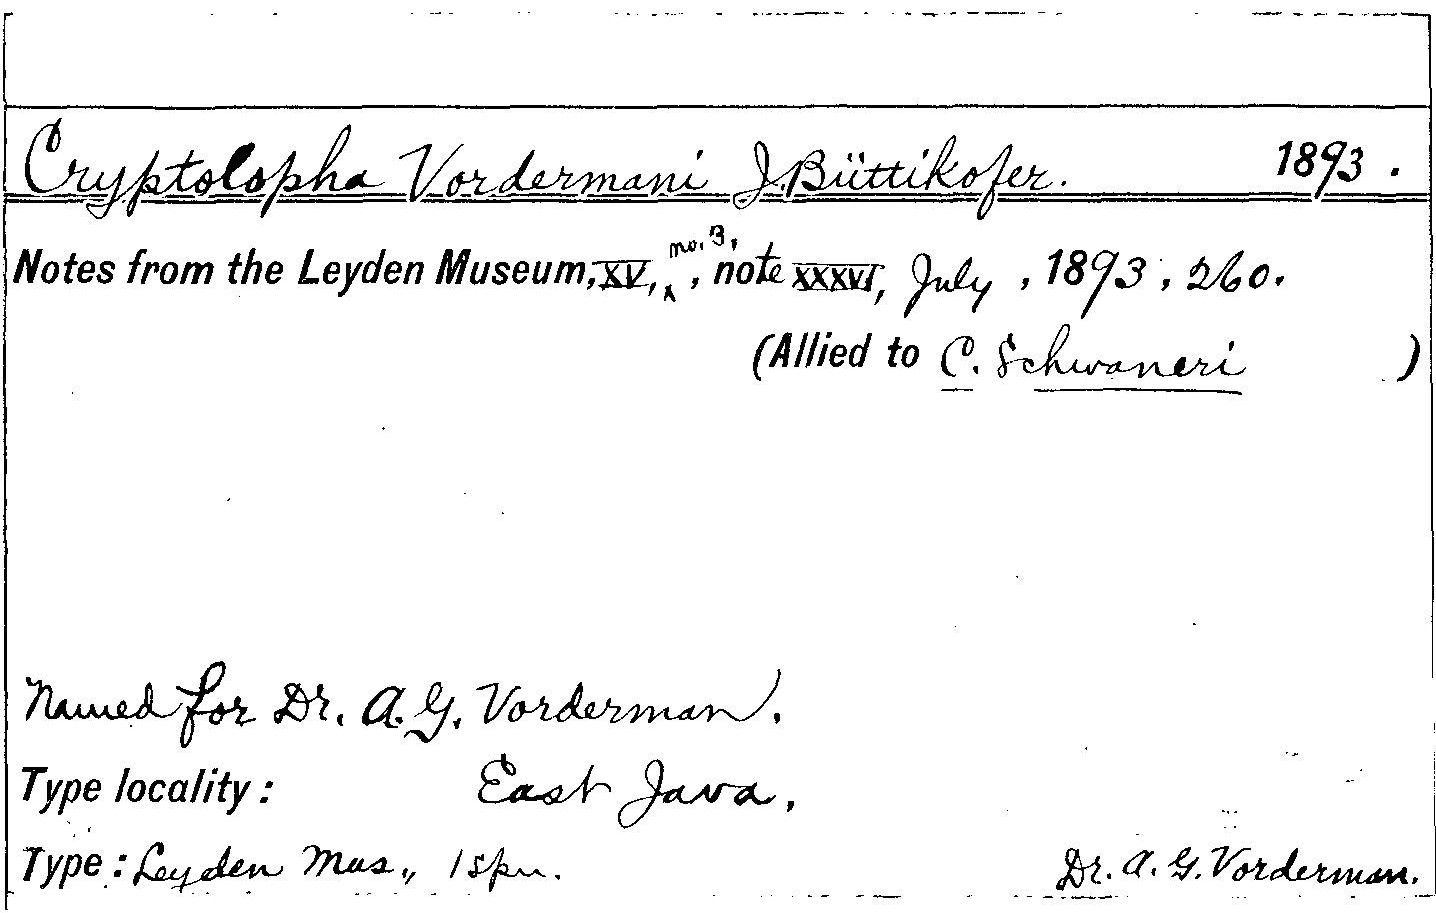 Cryptolopha Vordermani J. Büttikofer. 1893.
Notes from the Leyden Museum, XV, no. 3, , note XXXVI, July , 1893 , 260.
(Allied to C. Schwaneri )
Named for Dr. A. G. Vorderman.
Type locality: East Java.
Type: Leyden Mus., 1 spn. Dr. A. G. Vorderman.